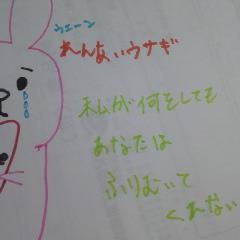 ウェーン
れんあいウサギ
私が何をしても
あなたは
ふりむいて
くれない